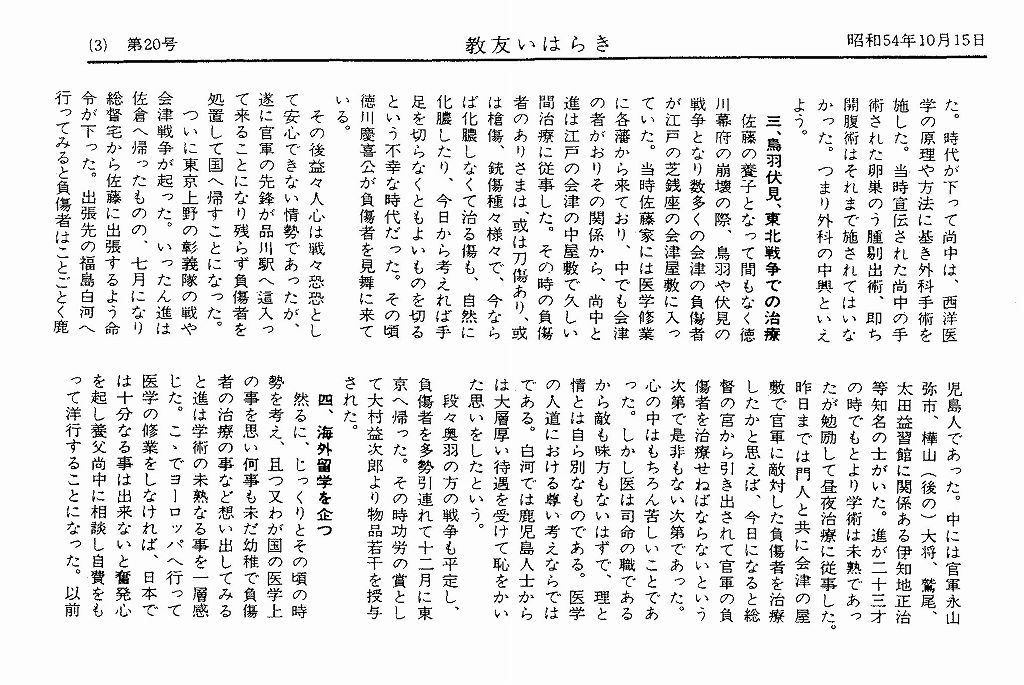 (3) 第20号
教友いはらき
昭和54年10月15日
た。時代が下って尚中は、西洋医
学の原理や方法に基き外科手術を
施した。当時宣伝された尚中の手
術された卵巣のう腫剔出術、即ち
開腹術はそれまで施されてはいな
かった。つまり外科の中興といえ
よう。
三、鳥羽伏見、東北戦争での治療
佐藤の養子となって間もなく徳
川幕府の崩壊の際、鳥羽や伏見の
戦争となり数多くの会津の負傷者
が江戸の芝銭座の会津屋敷に入っ
ていた。当時佐藤家には医学修業
に各藩から来ており、中でも会津
の者がおりその関係から、尚中と
進は江戸の会津の中屋敷で久しい
間治療に従事した。その時の負傷
者のありさまは、或は刀傷あり、或
は槍傷、銃傷種々様々で、今なら
ば化膿しなくて治る傷も、自然に
化膿したり、今日から考えれば手
足を切らなくともよいものを切る
という不幸な時代だった。その頃
徳川慶喜公が負傷者を見舞に来て
いる。
その後益々人心は戦々恐恐とし
て安心できない情勢であったが、
遂に官軍の先鋒が品川駅へ這入っ
て来ることになり残らず負傷者を
処置して国へ帰すことになった。
ついに東京上野の彰義隊の戦や
会津戦争が起った。いったん進は
佐倉へ帰ったものの、七月になり
総督宅から佐藤に出張するよう命
令が下った。出張先の福島白河へ
行ってみると負傷者はことごとく鹿
児島人であった。中には官軍永山
弥市、樺山（後の）大将、鷲尾、
太田益習館に関係ある伊知地正治
等知名の士がいた。進が二十三才
の時でもとより学術は未熟であっ
たが勉励して昼夜治療に従事した。
昨日までは門人と共に会津の屋
敷で官軍に敵対した負傷者を治療
したかと思えば、今日になると総
督の宮から引き出されて官軍の負
傷者を治療せねばならないという
次第で是非もない次第であった。
心の中はもちろん苦しいことであ
った。しかし医は司命の職である
から敵も味方もないはずで、理と
情とは自ら別なものである。医学
の人道における尊い考えならでは
である。白河では鹿児島人士から
は大層厚い待遇を受けて恥をかい
た思いをしたという。
段々奥羽の方の戦争も平定し、
負傷者を多勢引連れて十二月に東
京へ帰った。その時功労の賞とし
て大村益次郎より物品若干を授与
された。
四、海外留学を企つ
然るに、じっくりとその頃の時
勢を考え、且つ又わが国の医学上
の事を思い何事も未だ幼稚で負傷
者の治療の事など想い出してみる
と進は学術の未熟なる事を一層感
じた。こゝでヨーロッパへ行って
医学の修業をしなければ、日本で
は十分なる事は出来ないと奮発心
を起し養父尚中に相談し自費をも
って洋行することになった。以前